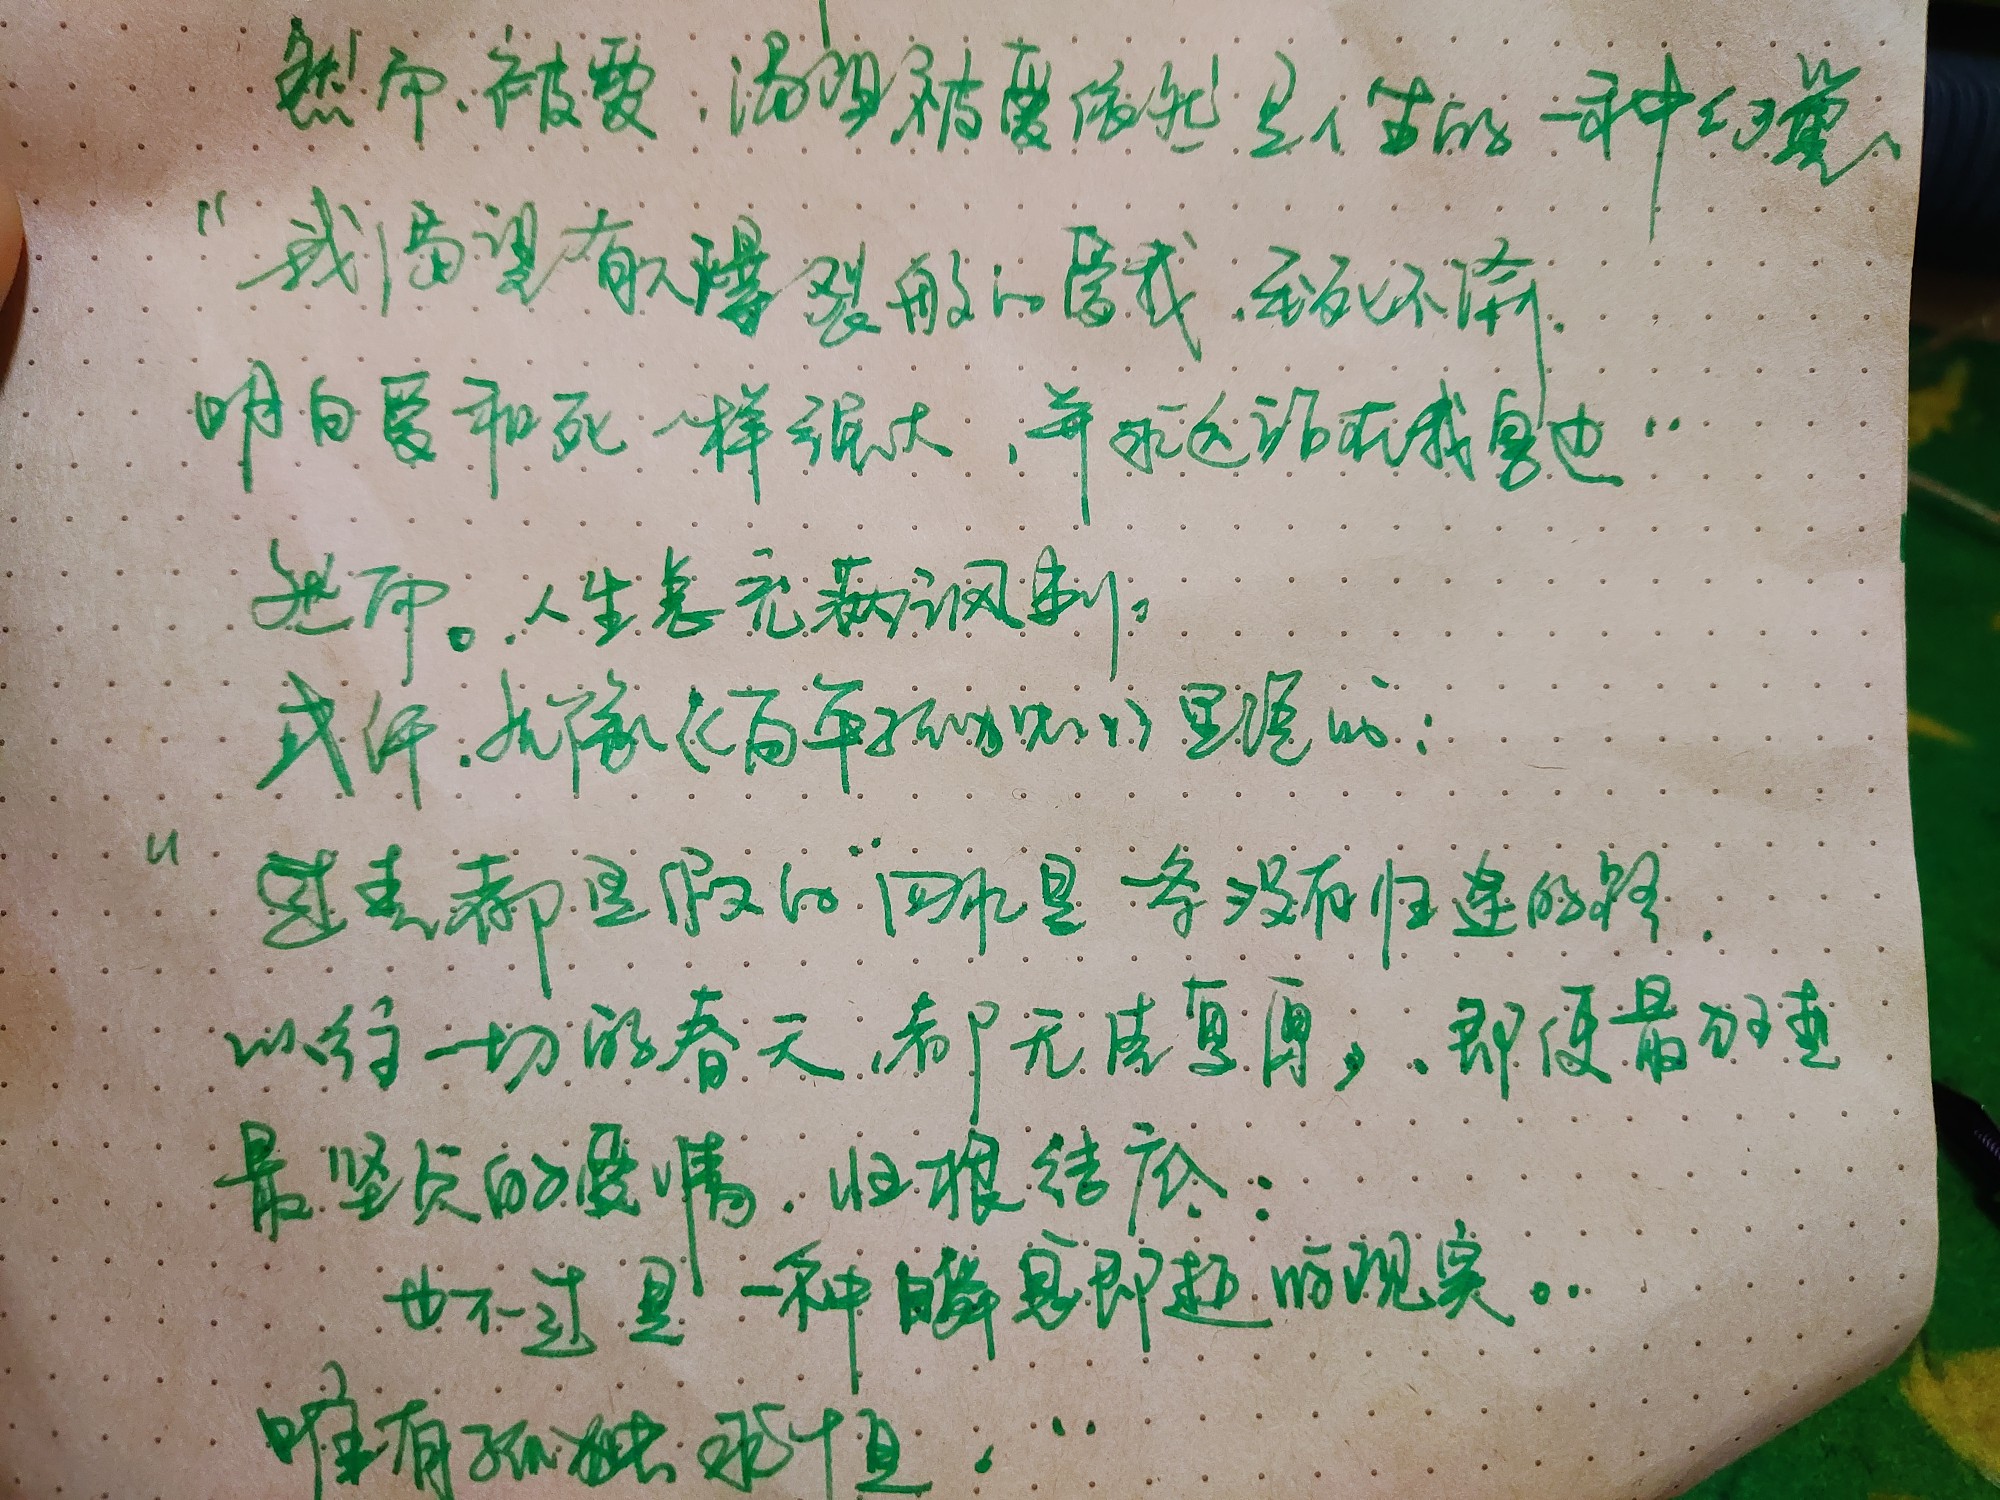 然而、被爱,渴望被爱依然是人生的一种幻觉、
"我渴望有人暴裂般的爱我,至死不渝.
明白爱和死一样强大,并永远站在我身边"
然而。人生总充满讽刺。
或许.就像《百年孤独》里说的:
"过去都是假的"回忆是一条没有归途的路.
以往一切的春天,都无法复原,即便最狂热
最坚贞的爱情.归根结底:
也不过是一种瞬息即逝的现实。
唯有孤独永恒."